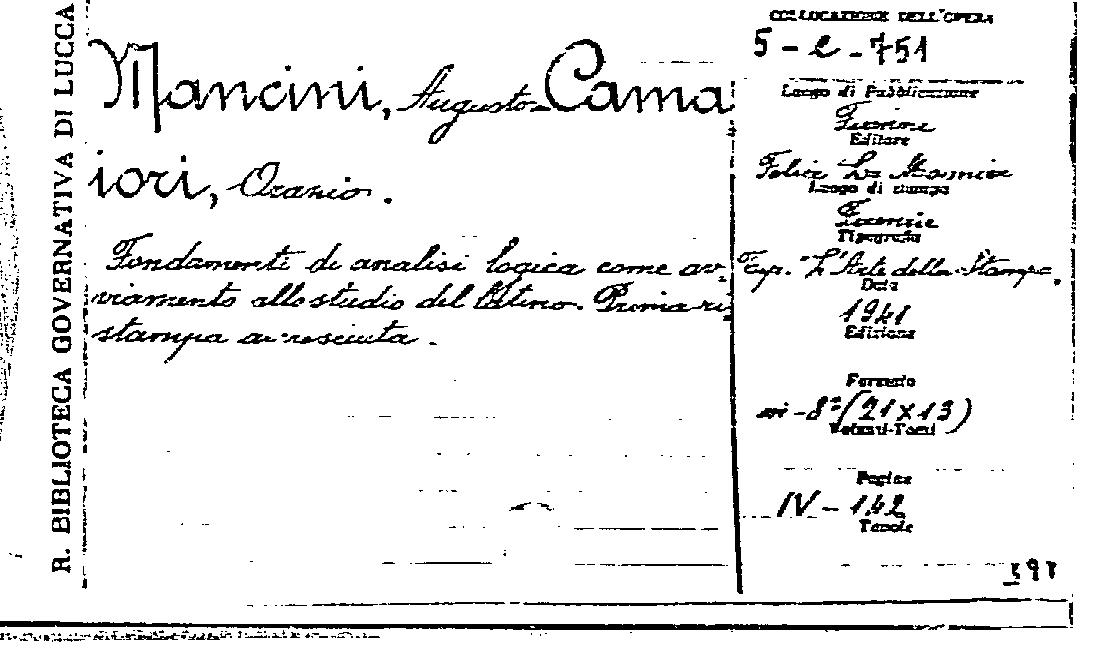 R. BIBLIOTECA GOVERNATIVA DI LUCCA
Mancini, Augusto - Cama
iori, Orazio.
Fondamenti di analisi logica come av-
viamento allo studio del latino. Prima ri
stampa accresciuta.
COLLOCAZIONE DELL'OPERA
5 - e - 751
Luogo di Pubblicazione
Firenze
Editore
Felice Le Monnier
Luogo di stampa
Firenze
Tipografia
Tip. "L'Arte della Stampa.
Data
1941
Edizione
Formato
8º (21 x 13)
Volumi-Tomi
Pagine
IV - 142
Tavole